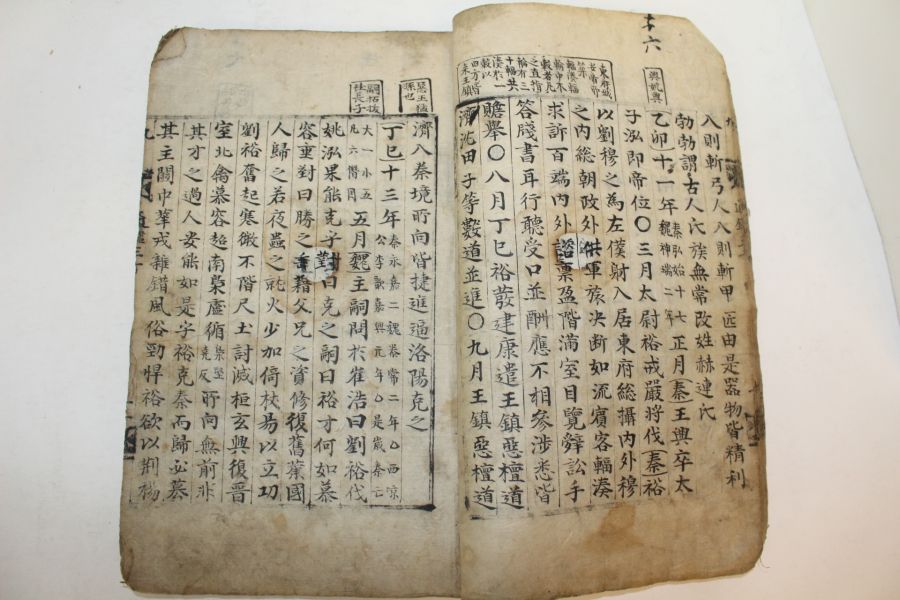 六
興姚興
入則斬弓人入則斬甲匠由是器物皆精利
勃勃謂古人氏族無常改姓赫連氏
乙卯十一年秦弘始十七魏神瑞二年正月秦王興卒太
子泓即帝位〇三月太尉裕戒嚴將伐秦裕
以劉穆之爲左僕射入居東府総攝內外穆
之內総朝政外供軍旅决断如流賓客輻湊
求訴百端內外諮禀盈階滿室目覽辭訟手
答牋書耳行聽受口並酬應不相參涉悉皆
贍舉〇八月丁巳裕發建康遣王鎮惡檀道
濟沈田子等數道並進〇九月王鎮惡檀道
嗣拓拔
珪長子
濟入秦境所向皆捷進逼洛陽克之
丁巳十三年秦永嘉二魏泰常二年
大一小五凡六僭國五月魏主嗣問於崔浩曰劉裕伐
姚泓果能克乎對曰克之嗣曰裕才何如慕
容垂對曰勝之垂藉父兄之資修復舊業國
人歸之若夜蟲之就火少加倚杖易以立功
劉裕奮起寒微不階尺土討滅桓玄興復晉
室北禽慕容超南梟盧循所向無前非
其才之過人安能如是乎裕克秦而歸必篡
其主關中華戎雜錯風俗勁悍裕欲以荆楊